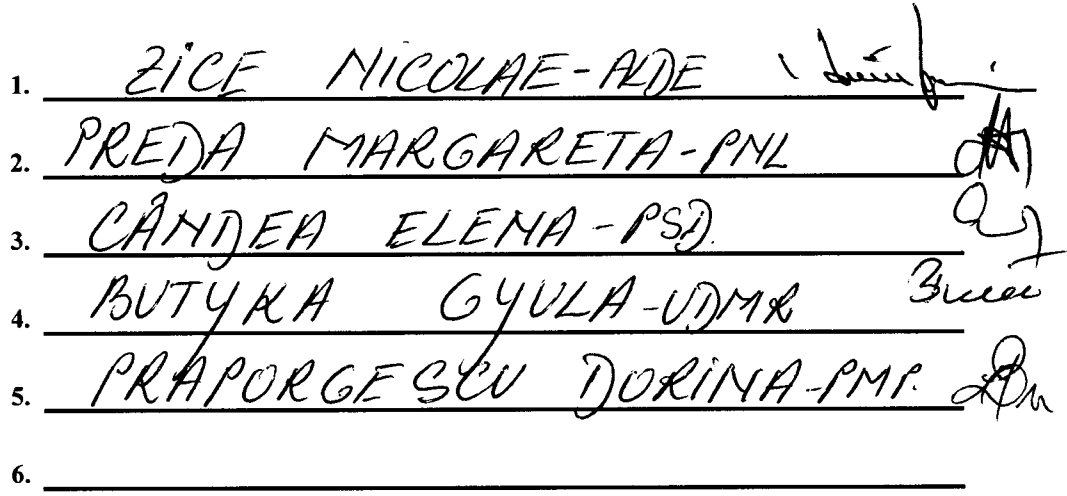 1. ZICE NICOLAE-ALDE
2. PREDA MARGARETA-PNL
3. CÂNDEA ELENA-PSD.
4. BUTYKA GYULA-UDMR
5. PRAPORGESCU DORINA-PMP.
6.